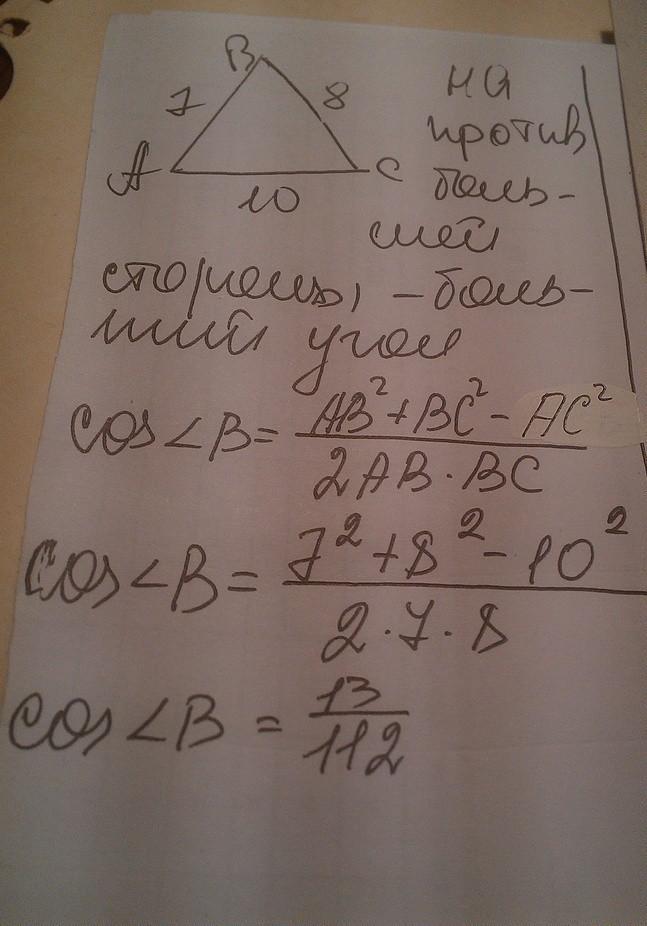 B
7
8
A
C
10
на
против
боль-
шей
стороны, – боль-
ший угол
cos∠B = (AB²+BC²-AC²)/(2AB·BC)
cos∠B = (7²+8²-10²)/(2·7·8)
cos∠B = 13/112